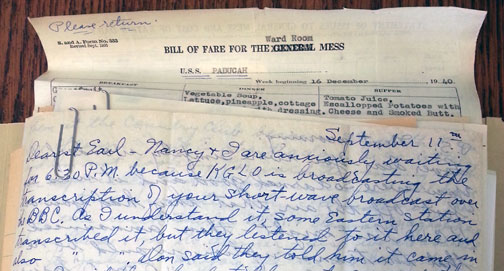 Please return.
S. and A. Form No. 333
Revised Sept. 1926
Ward Room
BILL OF FARE FOR THE GENERAL MESS
U.S.S. PADUCAH
Week beginning 16 December, 1940
BREAKFAST DINNER SUPPER
Vegetable Soup, Tomato Juice,
Lettuce,pineapple,cottage Escalloped Potatoes with
with dressing. Cheese and Smoked Butt.
September 11th
Dearest Earl - Nancy & I are anxiously waiting
for 6:30 P.M. because KGLO is broadcasting the
transcription of your short-wave broadcast over
BBC. As I understand it, some Eastern Station
transcribed it, but they listened to it here and
also " " . Don said they told him it came in